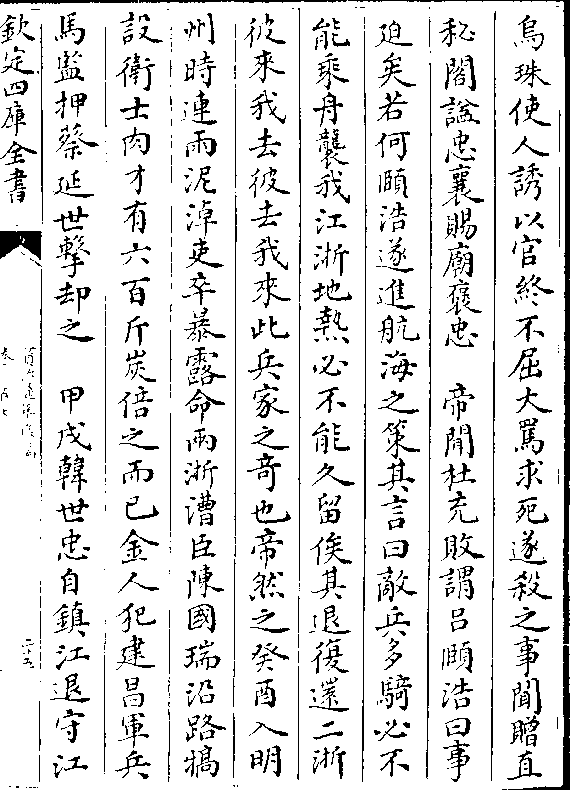 烏珠使人誘以官終不屈大罵求死遂殺之事聞贈直
秘閣諡忠襄賜廟褒忠　帝聞杜充敗謂吕頤浩曰事
迫矣若何頤浩遂進航海之策其言曰敵兵多騎必不
能乘舟襲我江浙地熱必不能久留俟其退復還二浙
彼來我去彼去我來此兵家之竒也帝然之癸酉入明
州時連雨泥淖吏卒暴露命兩浙漕臣陳國瑞沿路犒
設衛士肉才有六百斤炭倍之而已金人犯建昌軍兵
馬監押蔡延世擊却之　甲戌韓世忠自鎮江退守江
欽定四庫全書